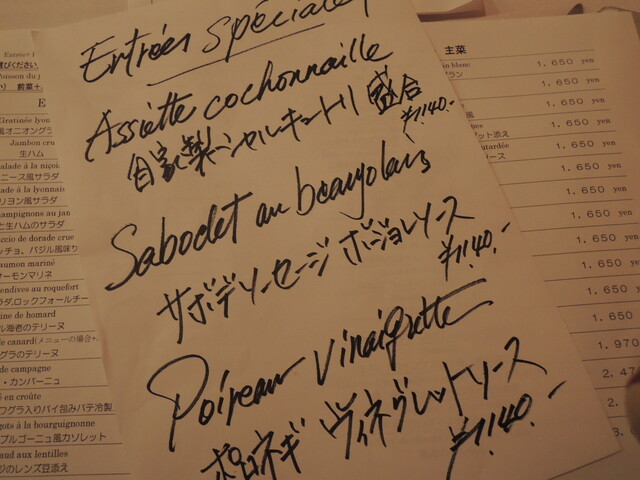 Entrées spéciales
Assiette cochonnaille
自家製シャルキュトリ 盛合
¥1,140.-
Sabodet au beaujolais
サボデソーセージ ボージョレソース
¥1,140.-
Poireau vinaigrette
ポロネギ ヴィネグレットソース
¥1,140.-
びください
Poisson du j
E
Gratinée lyon
風オニオングラ
Jambon cru
生ハム
salade à la niçoi
ニース風サラダ
alade à la lyonnais
リヨン風サラダ
ampignons au jan
と生ハムのサラダ
ccio de dorade crue
ッチョ、バジル風味
aumon mariné
サーモンマリネ
endives au roquefort
ラダ、ロックフォールチー
ine de homard
ル海老のテリーヌ
de canard(メニューの場合+
グラのテリーヌ
de campagne
・カンパーニュ
é en croûte
ワグラ入りパイ包みパテ冷製
gots à la bourguignonne
ブルゴーニュ風カソレット
aud aux lentilles
ジのレンズ豆添え
主菜
in blanc
1,650 yen
ブラン
1,650 yen
1,650 yen
ット添え
outardée
1,650 yen
ソース
1,650 yen
1,650 yen
1,650 yen
1,650 yen
1,650 yen
1,650
1,650
1,970
2,4